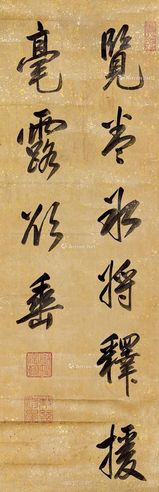 覽卷冰將釋援
毫露欲垂